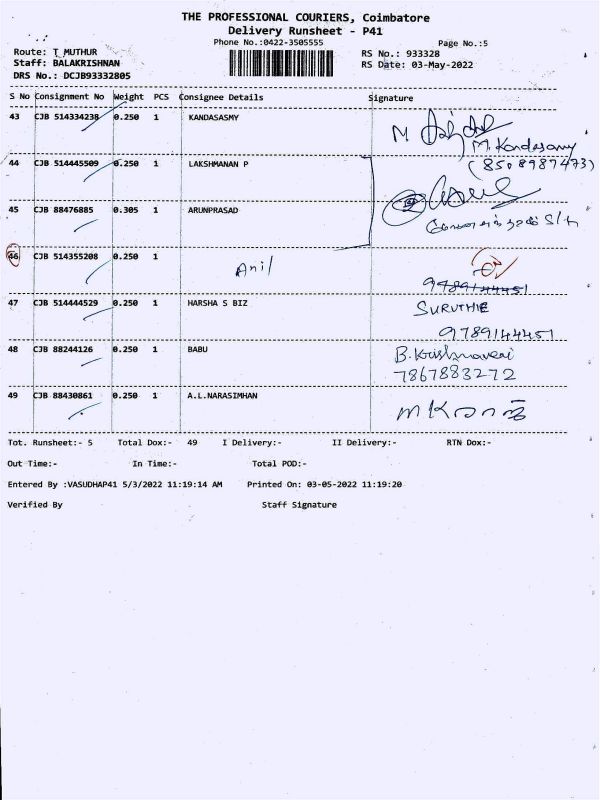 THE PROFESSIONAL COURIERS, Coimbatore
Delivery Runsheet - P41
Phone No.:0422-3505555
Page No.:5
Route: T_MUTHUR
RS No.: 933328
Staff: BALAKRISHNAN
RS Date: 03-May-2022
DRS No.: DCJB93332805
S No Consignment No Weight PCS Consignee Details Signature
43 CJB 514334238 0.250 1 KANDASASMY M
M. Kandasamy
(8508987473)
44 CJB 514445509 0.250 1 LAKSHMANAN P
45 CJB 88476885 0.305 1 ARUNPRASAD
46 CJB 514355208 0.250 1 Anil
9789144451
47 CJB 514444529 0.250 1 HARSHA S BIZ SURUTHIE
9789144451
48 CJB 88244126 0.250 1 BABU B. Krishnaveni
7867883272
49 CJB 88430861 0.250 1 A.L.NARASIMHAN
Tot. Runsheet:- 5 Total Dox:- 49 I Delivery:- II Delivery:- RTN Dox:-
Out Time:- In Time:- Total POD:-
Entered By :VASUDHAP41 5/3/2022 11:19:14 AM Printed On: 03-05-2022 11:19:20
Verified By Staff Signature